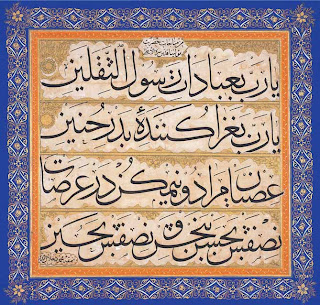 يارب بعبادات رسول الثقلين
يارب بغزا كنندۀ بدر حنين
عصيان مرا دو نيم كن در عرصات
نصفش بحسن ببخش و نصفش بحسين